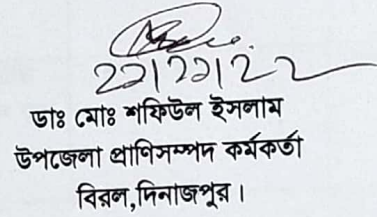 ডাঃ মোঃ শফিউল ইসলাম
উপজেলা প্রাণিসম্পদ কর্মকর্তা
বিরল,দিনাজপুর।